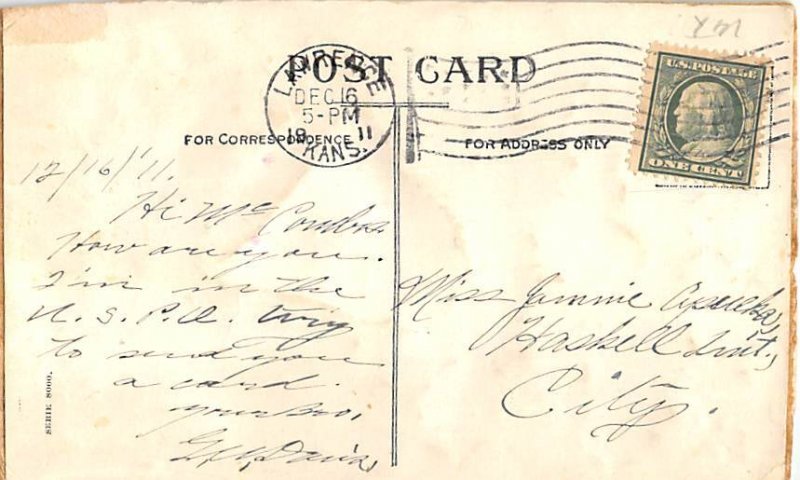 POST CARD
LAWRENCE
DEC 16
5-PM
19 11
KANS.
U.S. POSTAGE
ONE CENT
FOR CORRESPONDENCE
FOR ADDRESS ONLY
12/16/'11.
Hi Mc
How are you.
I'm in the
U. S. P. O.
to send you
a card.
your Bro,
Davis,
Miss Jannie
Haskell Inst.,
City.
SERIE 8000.